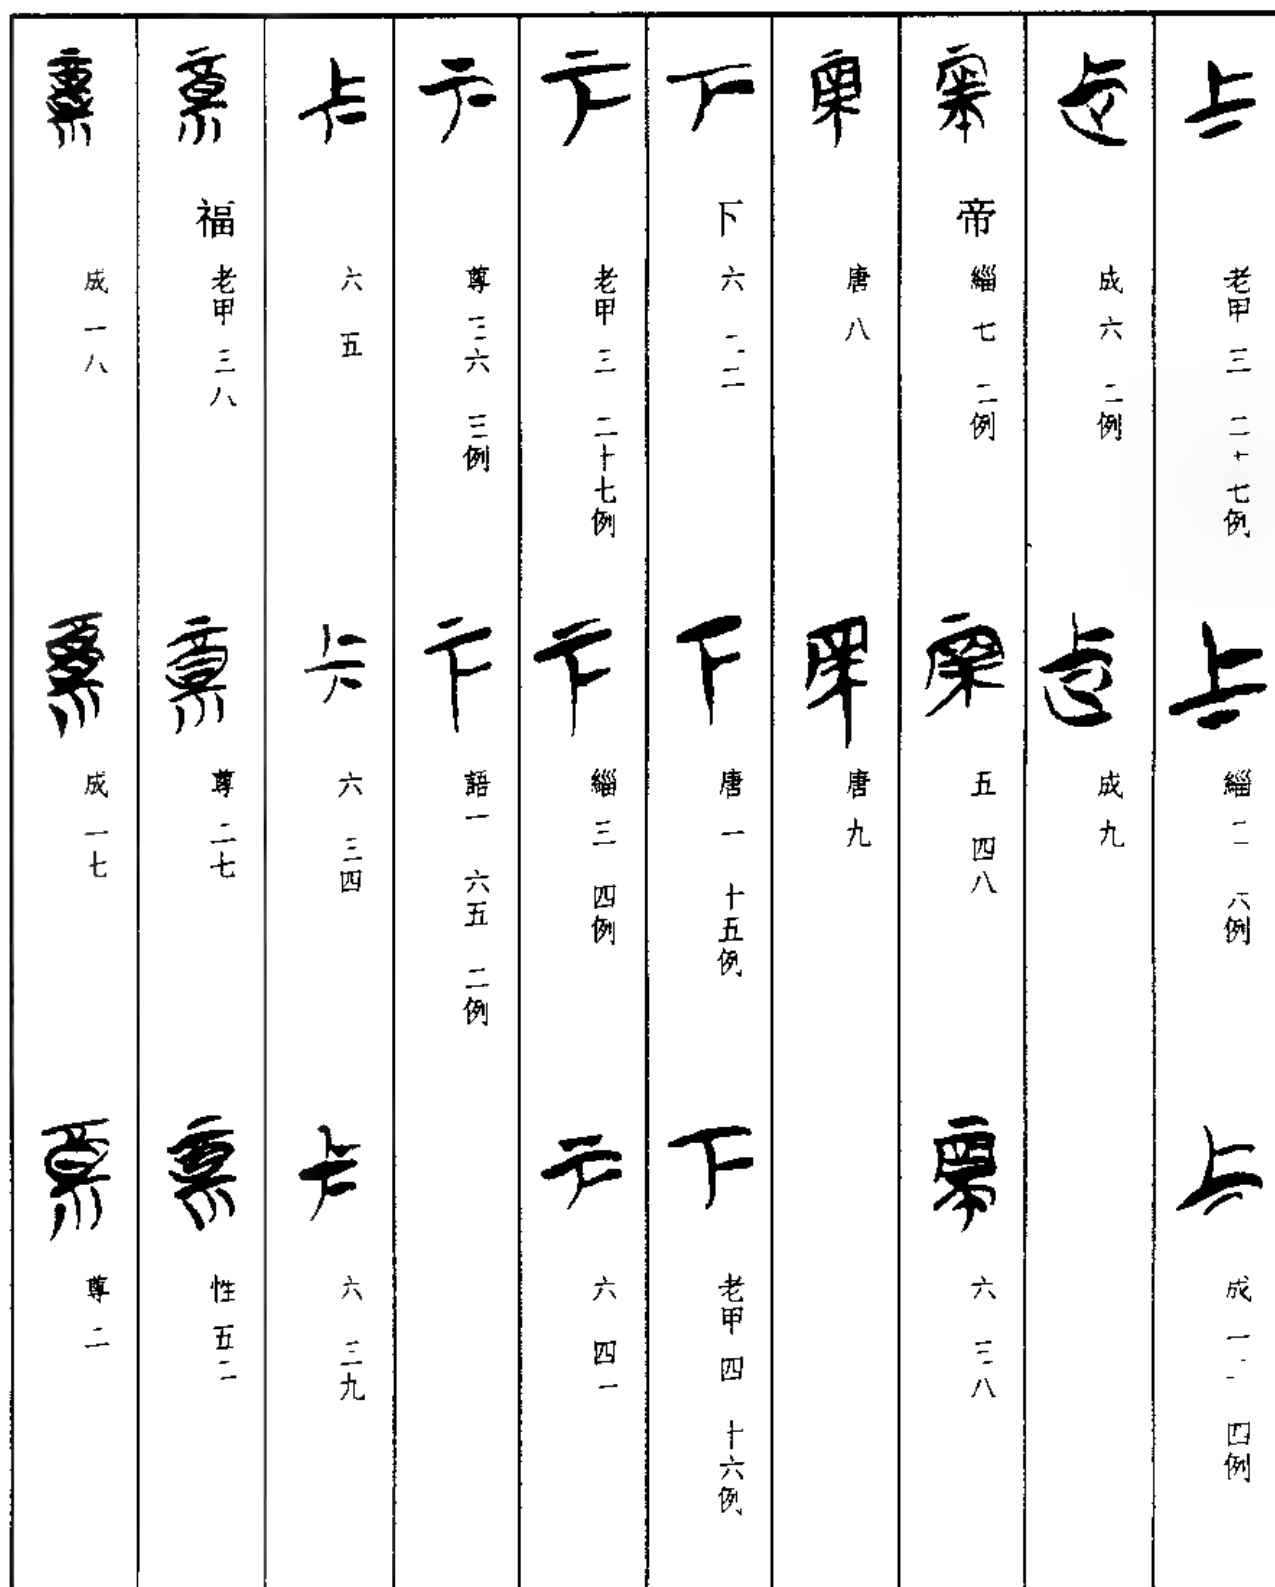 老甲 三 二十七例
緇 二 六例
成 四例
成 六 二例
成 九
帝
緇 七 二例
五 四八
六 三八
唐 八
唐 九
下
六 二二
唐 一 十五例
老甲 四 十六例
老甲 三 二十七例
緇 三 四例
六 四一
尊 三六 三例
語一 六五 二例
六 五
六 三四
六 三九
福
老甲 三八
尊 二七
性 五二
成 一八
成 一七
尊 二